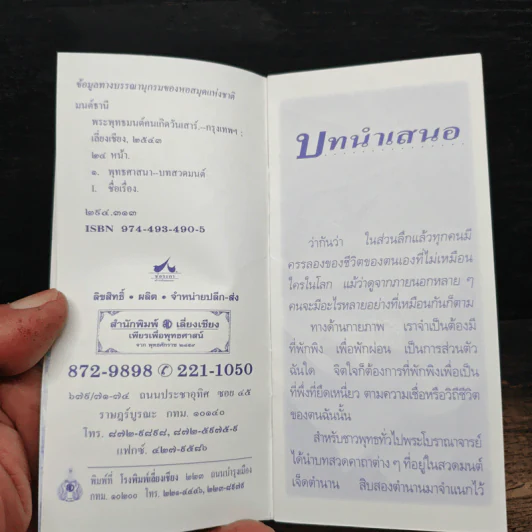 ข้อมูลทางบรรณานุกรมของหอสมุดแห่งชาติ
มนต์ธานี
พระพุทธมนต์คนเกิดวันเสาร์.--กรุงเทพฯ :
เลี่ยงเชียง, ๒๕๔๓
๒๔ หน้า.
๑. พุทธศาสนา--บทสวดมนต์
I. ชื่อเรื่อง.
๒๙๔.๓๑๓
ISBN 974-493-490-5
ลิขสิทธิ์ • ผลิต • จำหน่ายปลีก-ส่ง
สำนักพิมพ์ เลี่ยงเชียง
เพียรเพื่อพุทธศาสน์
872-9898 ✆ 221-1050
๖๗๙/๗๑-๗๔ ถนนประชาอุทิศ ซอย ๔๕
ราษฎร์บูรณะ กทม. ๑๐๑๔๐
โทร. ๘๗๒-๙๘๙๘, ๘๗๒-๕๙๗๕-๙
แฟกซ์. ๔๒๗-๙๕๘๖
พิมพ์ที่ โรงพิมพ์เลี่ยงเชียง ๒๒๓ ถนนบำรุงเมือง
กทม. ๑๐๒๐๐ โทร. ๒๒๑-๔๔๔๖, ๒๒๓-๘๙๗๙
บทนำเสนอ
ว่ากันว่า ในส่วนลึกแล้วทุกคนมี
ครรลองของชีวิตของตนเองที่ไม่เหมือน
ใครในโลก แม้ว่าดูจากภายนอกหลาย ๆ
คนจะมีอะไรหลายอย่างที่เหมือนกันก็ตาม
ทางด้านกายภาพ เราจำเป็นต้องมี
ที่พักพิง เพื่อพักผ่อน เป็นการส่วนตัว
ฉันใด จิตใจก็ต้องการที่พักพิงเพื่อเป็น
ที่พึ่งที่ยึดเหนี่ยว ตามความเชื่อหรือวิถีชีวิต
ของตนฉันนั้น
สำหรับชาวพุทธทั่วไปพระโบราณาจารย์
ได้นำบทสวดคาถาต่าง ๆ ที่อยู่ในสวดมนต์
เจ็ดตำนาน สิบสองตำนานมาจำแนกไว้